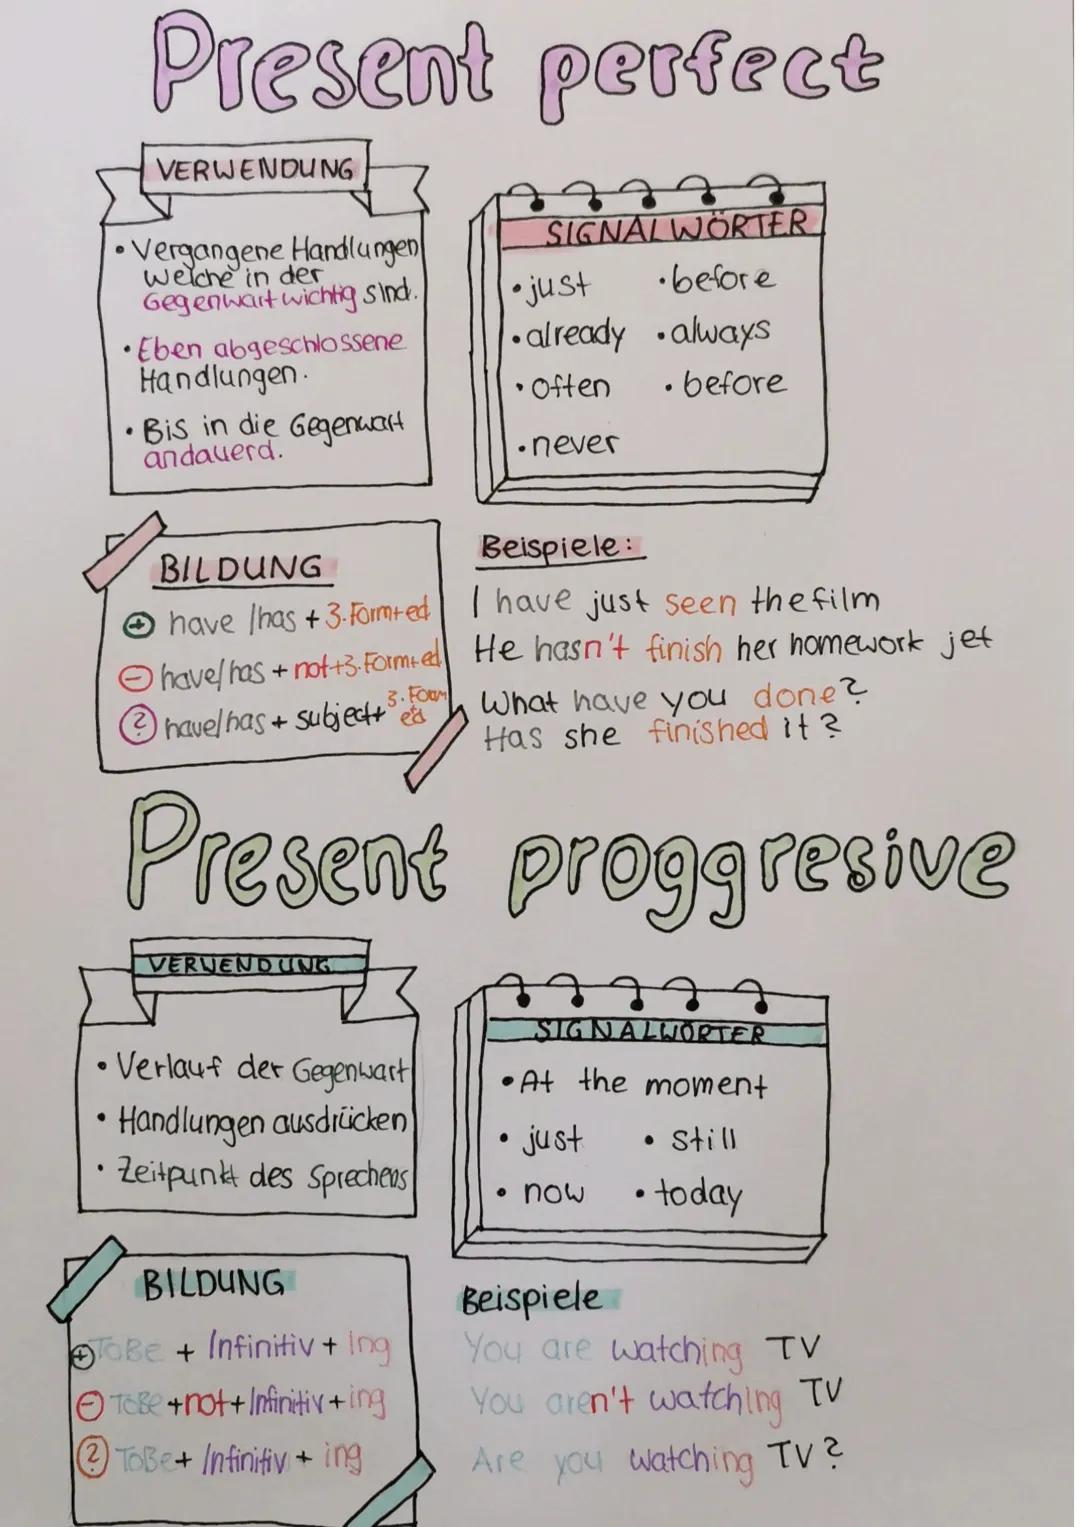 Present perfect
VERWENDUNG
• Vergangene Handlungen
welche in der
Gegenwart wichtig sind.
• Eben abgeschlossene
Handlungen.
• Bis in die Gegenwart
andauerd.
SIGNALWÖRTER
• just • before
• already • always
• often • before
• never
BILDUNG
+ have /has + 3.Form+ed
- have/has + not+3.Form+ed
? have/has + subject+ 3.Form
ed
Beispiele:
I have just seen the film
He hasn't finish her homework jet
What have you done?
Has she finished it?
Present proggresive
VERWENDUNG
• Verlauf der Gegenwart
• Handlungen ausdrücken
• Zeitpunkt des Sprechens
SIGNALWÖRTER
• At the moment
• just • still
• now • today
BILDUNG
+ ToBe + Infinitiv + ing
- ToBe +not+Infinitiv+ing
? ToBe+ Infinitiv + ing
Beispiele
You are watching TV
You aren't watching TV
Are you watching TV?